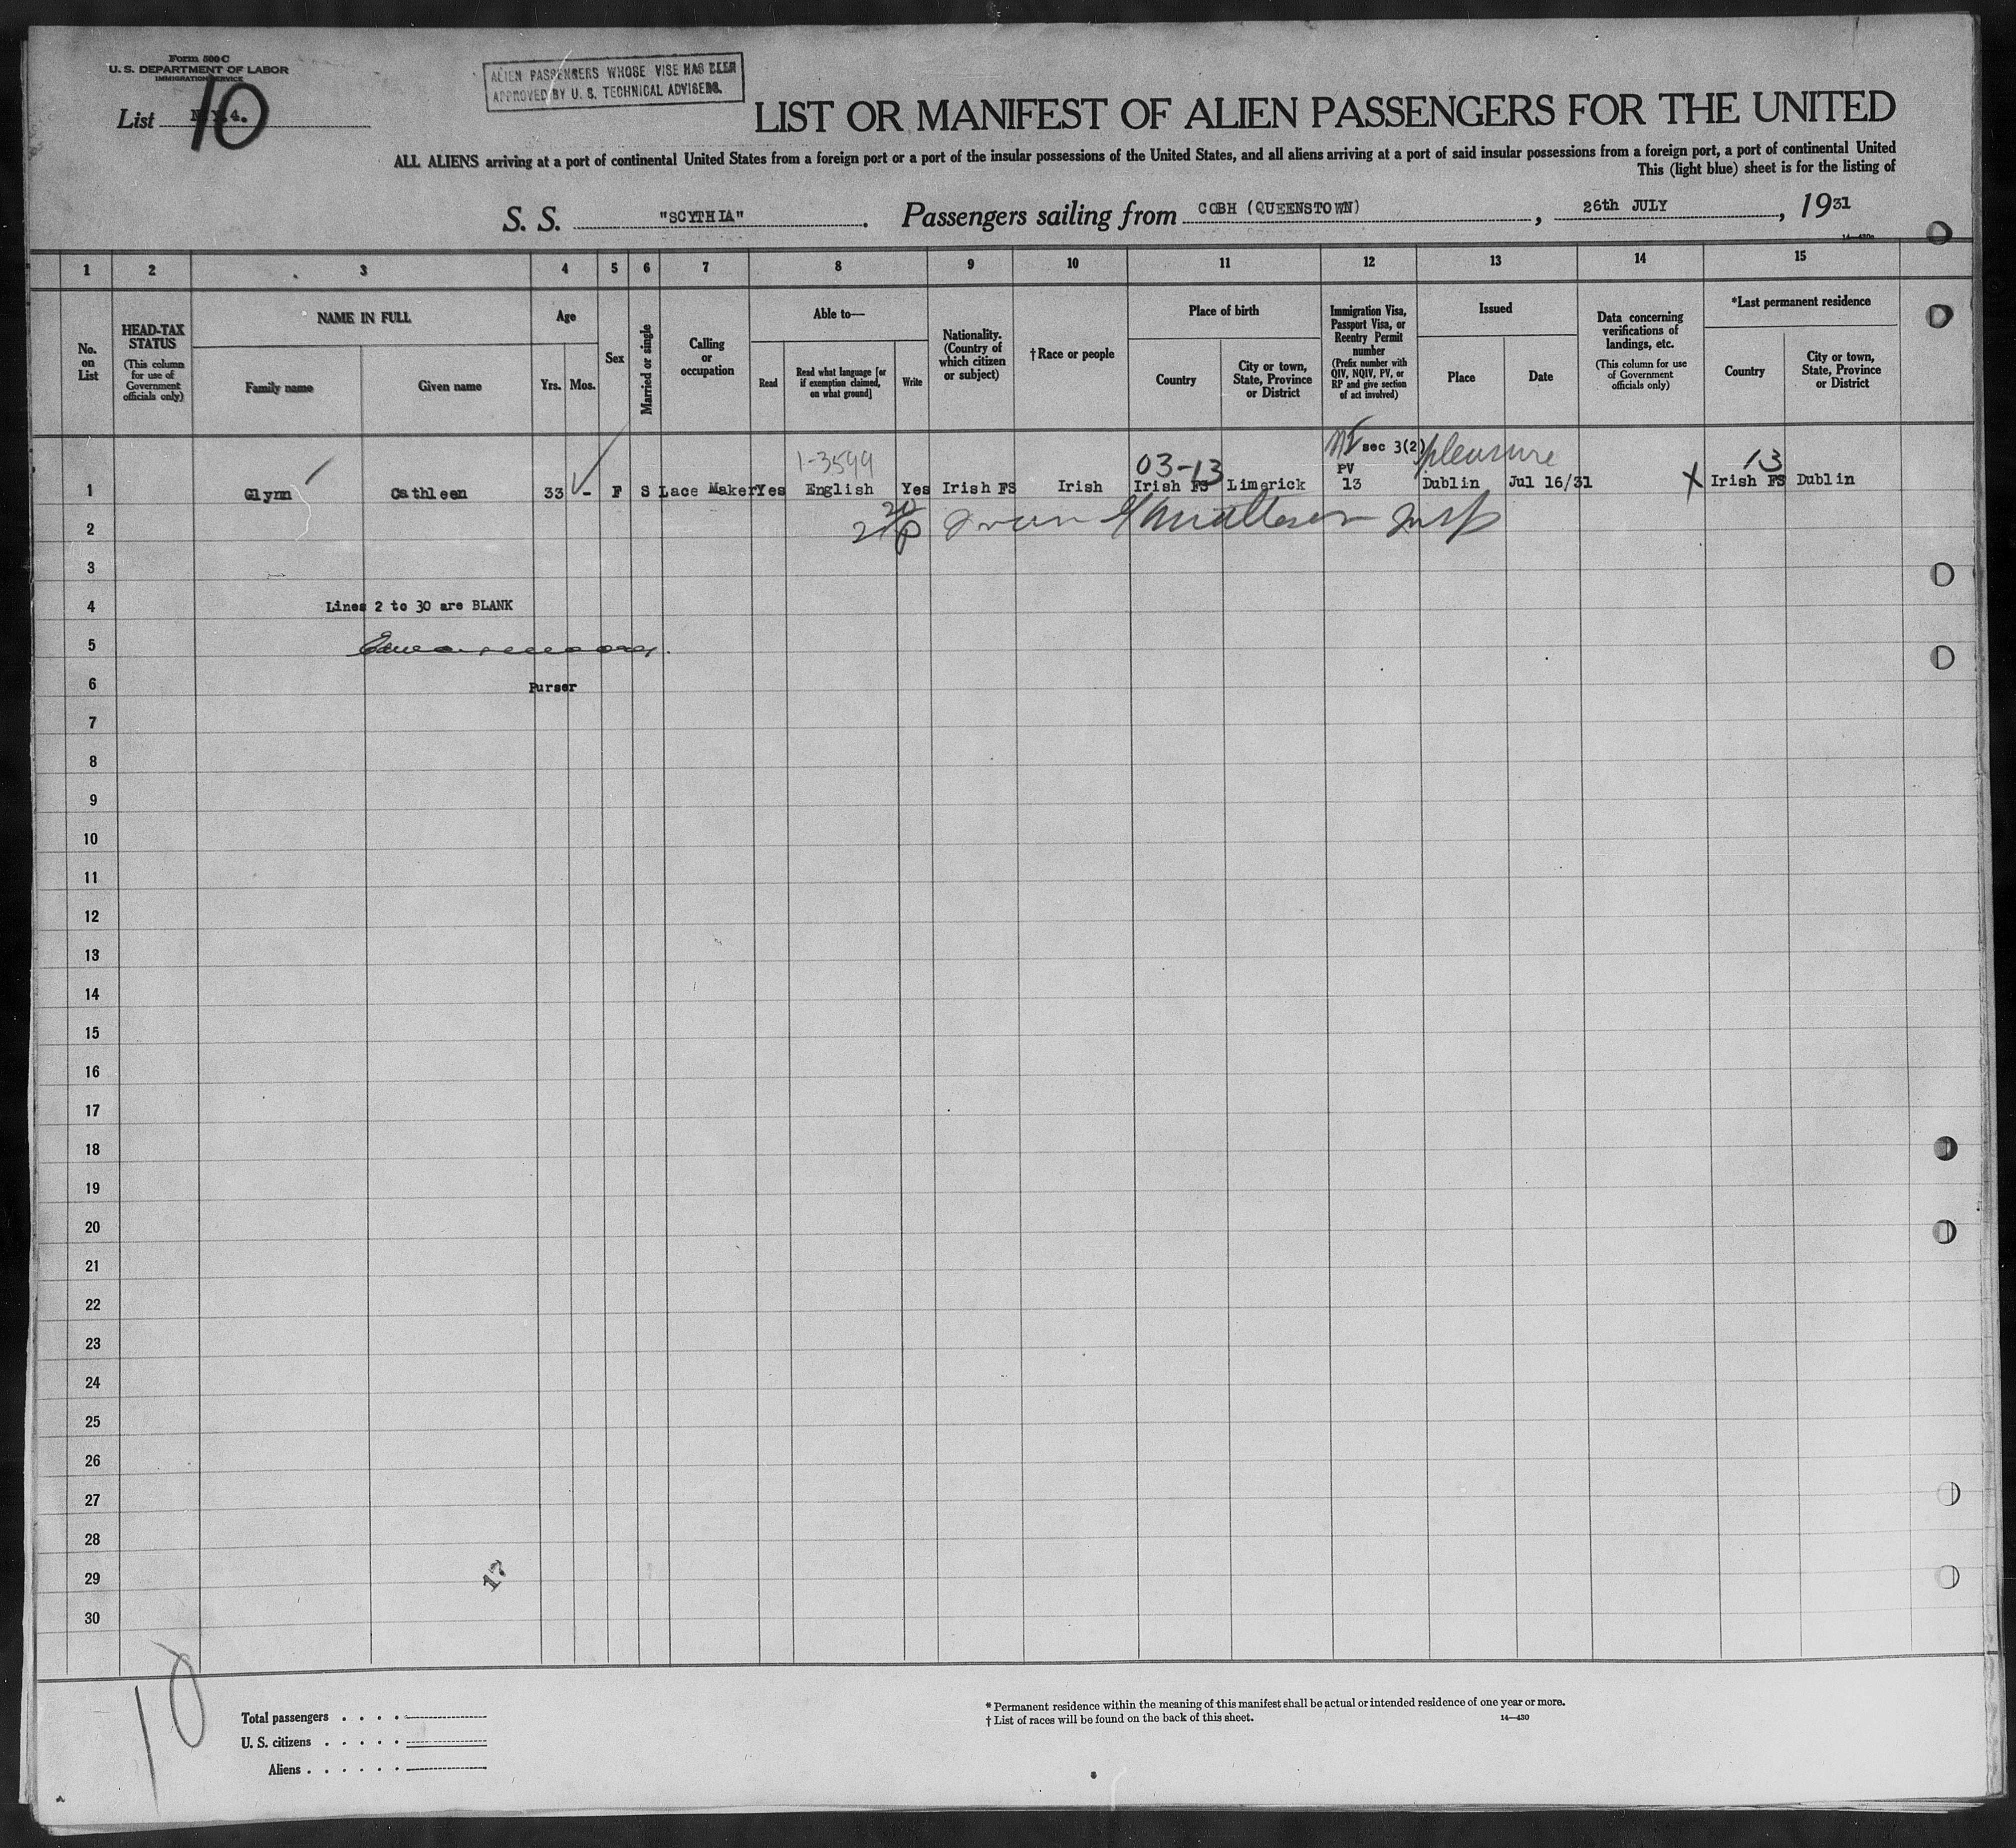 Form 500 C
U. S. DEPARTMENT OF LABOR
IMMIGRATION SERVICE
List 10
ALIEN PASSENGERS WHOSE VISE HAS BEEN
APPROVED BY U. S. TECHNICAL ADVISERS.
LIST OR MANIFEST OF ALIEN PASSENGERS FOR THE UNITED
ALL ALIENS arriving at a port of continental United States from a foreign port or a port of the insular possessions of the United States, and all aliens arriving at a port of said insular possessions from a foreign port, a port of continental United
This (light blue) sheet is for the listing of
S. S. "SCYTHIA". Passengers sailing from COBH (QUEENSTOWN), 26th JULY, 1931
1 2 3 4 5 6 7 8 9 10 11 12 13 14 15
No. on List
HEAD-TAX STATUS
(This column for use of Government officials only)
NAME IN FULL
Family name
Given name
Age
Yrs.
Mos.
Sex
Married or single
Calling or occupation
Able to—
Read
Read what language [or if exemption claimed, on what ground]
Write
Nationality. (Country of which citizen or subject)
†Race or people
Place of birth
Country
City or town, State, Province or District
Immigration Visa, Passport Visa, or Reentry Permit number
(Prefix number with QIV, NQIV, PV, or RP and give section of act involved)
Issued
Place
Date
Data concerning verifications of landings, etc.
(This column for use of Government officials only)
*Last permanent residence
Country
City or town, State, Province or District
1-3599 03-13 sec 3(2) pleasure 13
PV
1 Glynn Cathleen 33 - F S Lace Maker Yes English Yes Irish FS Irish Irish FS Limerick 13 Dublin Jul 16/31 X Irish FS Dublin
2
3
4 Lines 2 to 30 are BLANK
5
6 Purser
7
8
9
10
11
12
13
14
15
16
17
18
19
20
21
22
23
24
25
26
27
28
29
30
17
10
Total passengers
U. S. citizens
Aliens
* Permanent residence within the meaning of this manifest shall be actual or intended residence of one year or more.
† List of races will be found on the back of this sheet.
14—430